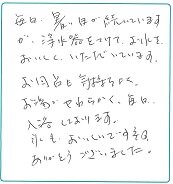 毎日、暑い日が続いています
が、浄水器をつけて、お水を
おいしく、いただいています。
お風呂も気持ちよく、
お湯がやわらかく、毎日
入浴しております。
水も、おいしいですネ。
ありがとうございました。